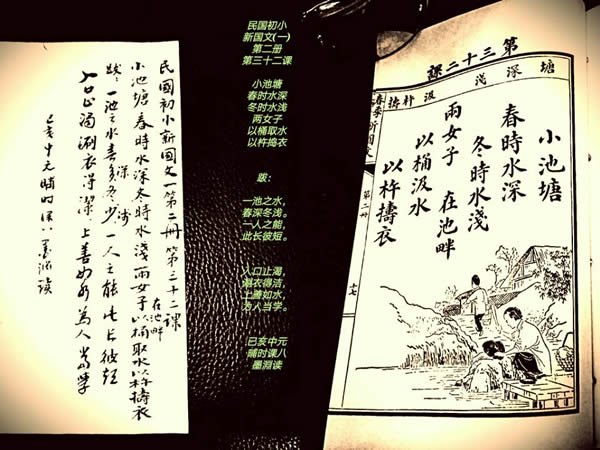 民國初小新国文一第二册第三十二课
小池塘春時水深冬時水淺兩女子在池畔以桶取水以杵擣衣
跋：一池之水春深冬浅一人之能此长彼短
入口止渴涮衣得潔上善如水為人当学
民国初小
新国文(一)
第二册
第三十二课
小池塘
春时水深
冬时水浅
两女子
以桶取水
以杵捣衣
跋：
一池之水，
春深冬浅。
一人之能，
此长彼短。
入口止渴，
涮衣得洁，
上善如水，
为人当学。
已亥中元
晡时课八
墨淵读
第三十二課
塘 深 淺 汲 杵 擣
小池塘
春時水深
冬時水淺
兩女子 在池畔
以桶汲水
以杵擣衣